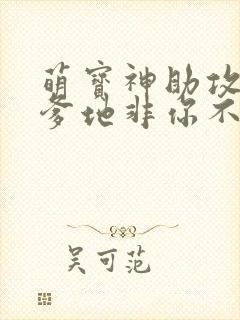 萌宝神助攻
爹地非你不
吴可范